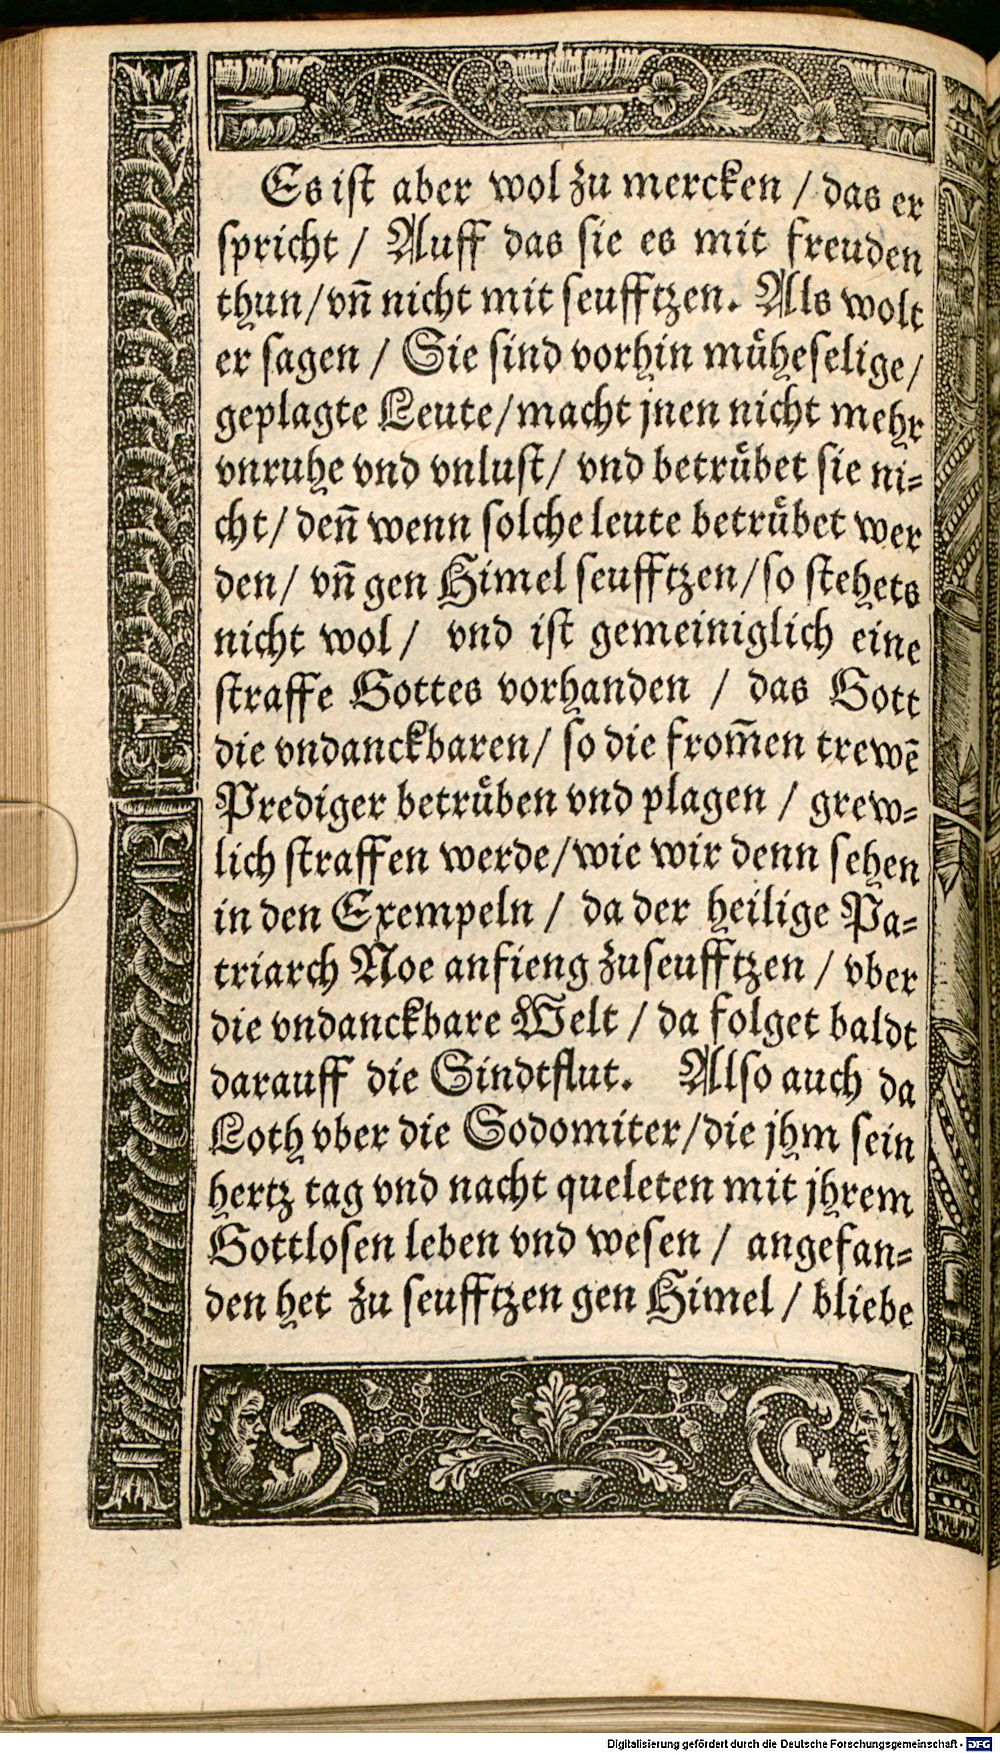 Es ist aber wol zu mercken / das er
spricht / Auff das sie es mit freuden
thun/vñ nicht mit seufftzen. Als wolt
er sagen / Sie sind vorhin muͤheselige/
geplagte Leute/macht jnen nicht mehr
vnruhe vnd vnlust/ vnd betruͤbet sie ni=
cht/ deñ wenn solche leute betruͤbet wer
den/ vñ gen Himel seufftzen/so stehets
nicht wol/ vnd ist gemeiniglich eine
straffe Gottes vorhanden / das Gott
die vndanckbaren/ so die from̄en trewē
Prediger betruͤben vnd plagen / grew=
lich straffen werde/wie wir denn sehen
in den Exempeln / da der heilige Pa=
triarch Noe anfieng zuseufftzen / vber
die vndanckbare Welt / da folget baldt
darauff die Sindtflut. Also auch da
Loth vber die Sodomiter/die jhm sein
hertz tag vnd nacht queleten mit jhrem
Gottlosen leben vnd wesen / angefan=
den het zu seufftzen gen Himel / bliebe
Digitalisierung gefördert durch die Deutsche Forschungsgemeinschaft - DFG